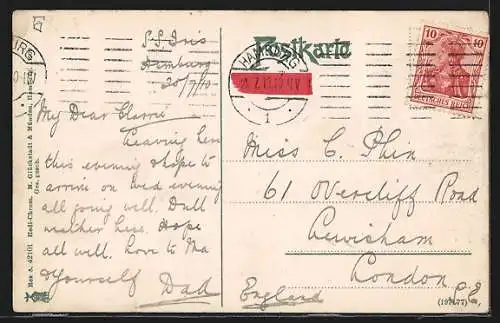 Postkarte
S.S. Iris
Hamburg
20/7/10
HAMBURG
1
10 10
DEUTSCHES REICH
My Dear Clarrie
Leaving here
this evening & hope to
arrive on Wed evening
all going well. Dull
weather here. Hope
all well. Love to Ma
& Yourself Dad
Miss C. Phin
61 Overcliff Road
Lewisham
London
S.E.
England
Rex A. 42101 Hedi-Chrom. M. Glückstadt & Münden, Hamburg.
Ges. gesch.